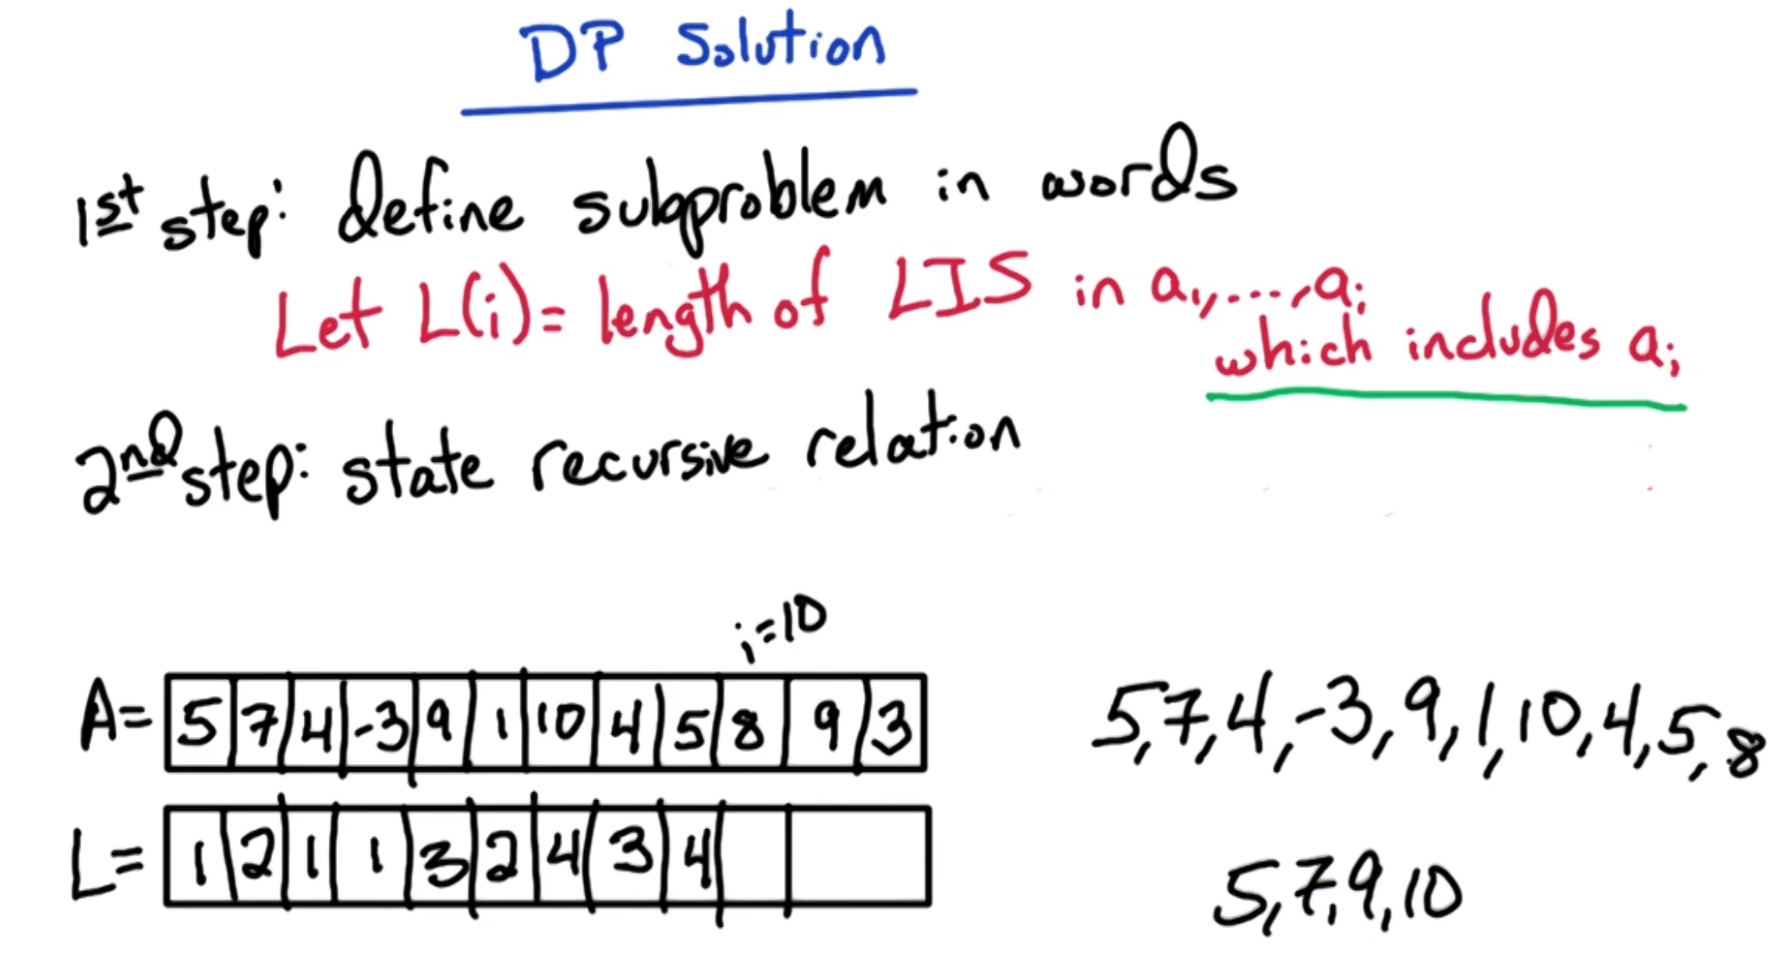 DP Solution
1st step: define subproblem in words
Let L(i) = length of LIS in a₁, ..., aᵢ
which includes aᵢ
2nd step: state recursive relation
i=10
A= 5 7 4 -3 9 1 10 4 5 8 9 3
5, 7, 4, -3, 9, 1, 10, 4, 5, 8
L= 1 2 1 1 3 2 4 3 4
5, 7, 9, 10